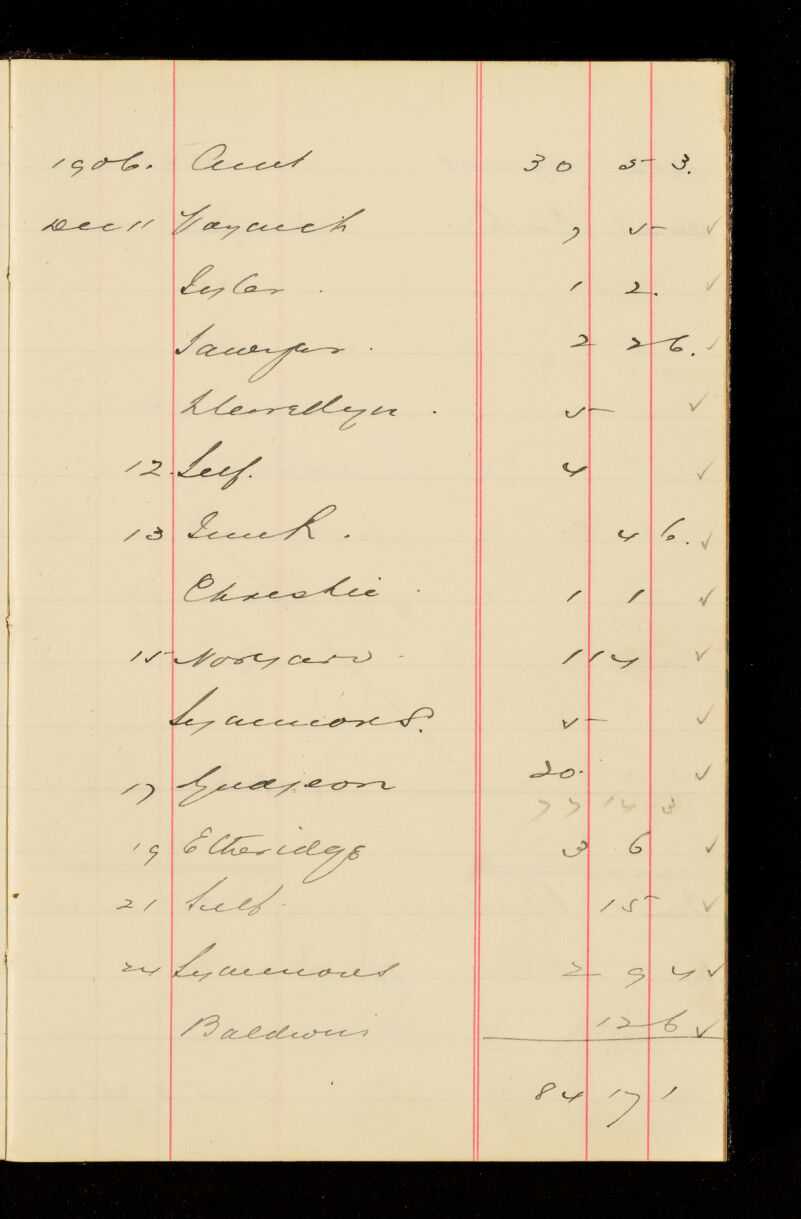 1906. Amt 30 5 3.
Dec 11 7 5 ✓
1 2. ✓
Sawyer . 2 2 6. ✓
Llewellyn . 5 – ✓
12. Self. 4 ✓
13 4 6. ✓
Christie . 1 1 ✓
15 1 14 ✓
Symmons. 5 – ✓
17 Gudgeon 20. ✓
77 14 3
19 Etheridge 3 6 ✓
21 Self. 15 ✓
24 Symmons 2 9 4 ✓
Baldwin 12 6 ✓
84 17 1